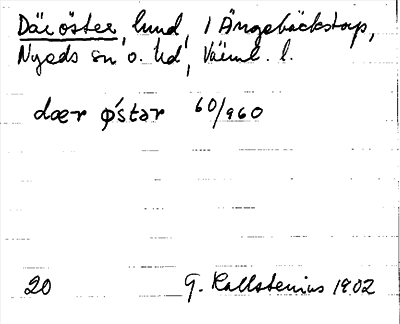 Där öster, lund, 1 Ängebäckstorp,
Nyeds sn o. hd, Värml. l.
dær ǿstər 60/960
20 G. Kallstenius 1902